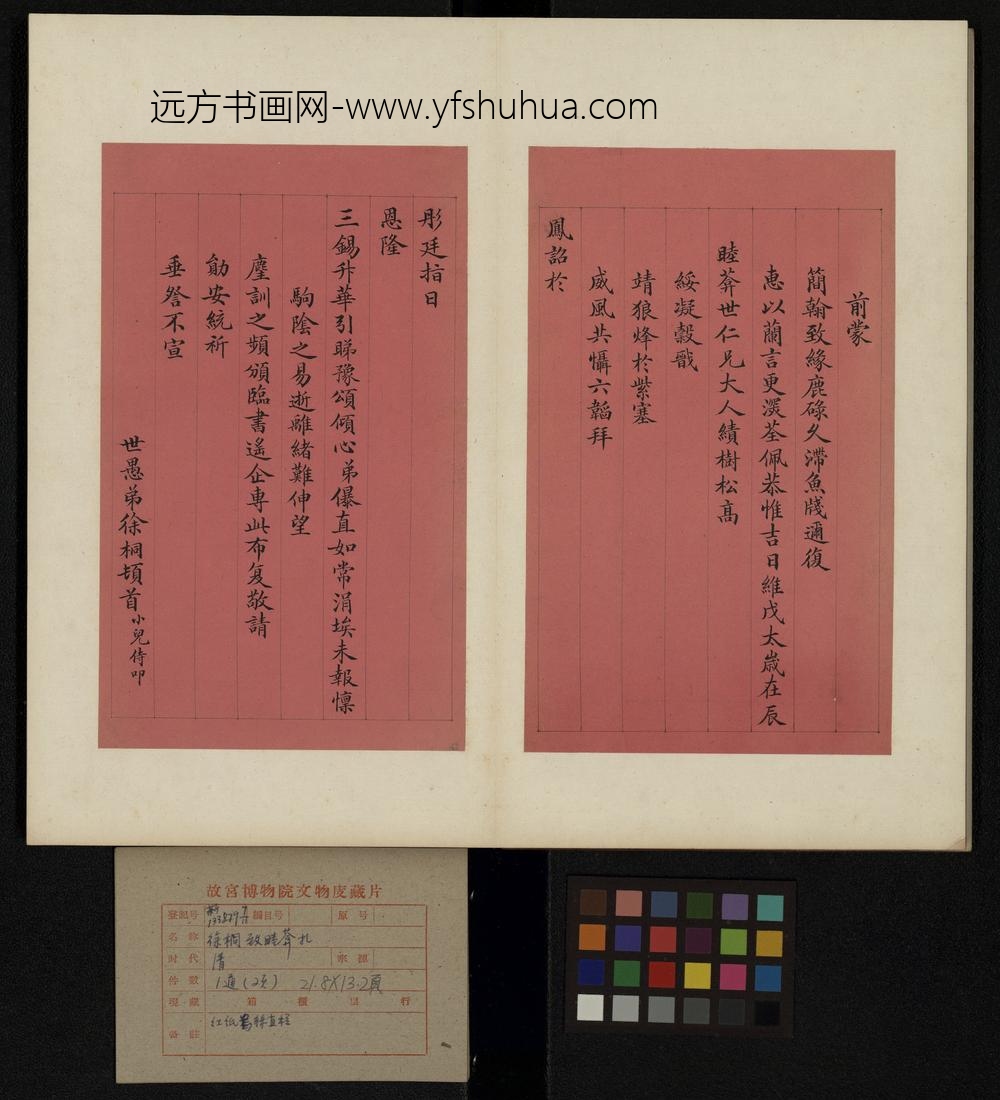 远方书画网-www.yfshuhua.com
前蒙
簡翰致緣鹿碌久滯魚牋邇復
惠以蘭言更深荃佩恭惟吉日維戊太歲在辰
睦葊世仁兄大人績樹松高
綏凝轂戩
靖狼烽於紫塞
威風共懾六韜拜
鳳詔於
彤廷指日
恩隆
三錫升華引睇豫頌傾心弟儤直如常涓埃未報懍
駒陰之易逝離緒難伸望
麈訓之頻頒臨書遙企專此布复敬請
勛安統祈
垂詧不宣
世愚弟徐桐頓首小兒侍叩
故宮博物院文物庋藏片
登記号 新133529 編目号 原号
名称 徐桐致睦葊札
时代 清 來源
件数 1通(2页) 21.8X13.2頁
現藏 箱 櫃 屜 行
备註 红纸 直栏